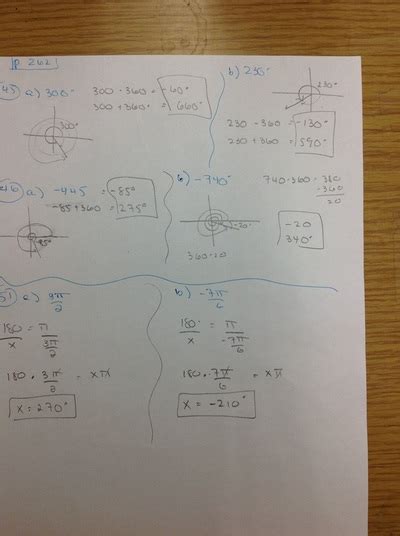 p. 262
45 a) 300°
300 - 360 = -60°
300 + 360 = 660°
300°
b) 230°
230°
230 - 360 = -130°
230 + 360 = 590°
a) -445 = -85°
-85 + 360 = 275°
-85°
b) -740°
740 - 360 = 380
-360
20
-20°
-20
340°
360 - 20
51 a) 3π/2
180/x = π/(3π/2)
180 · 3π/2 = xπ
x = 270°
b) -7π/6
180°/x = π/(-7π/6)
180 · -7π/6 = xπ
x = -210°